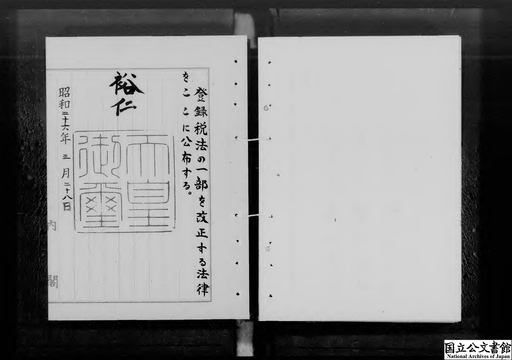 登録税法の一部を改正する法律
をここに公布する。
裕仁
天皇
御璽
昭和二十六年三月二十八日
内閣
国立公文書館
National Archives of Japan